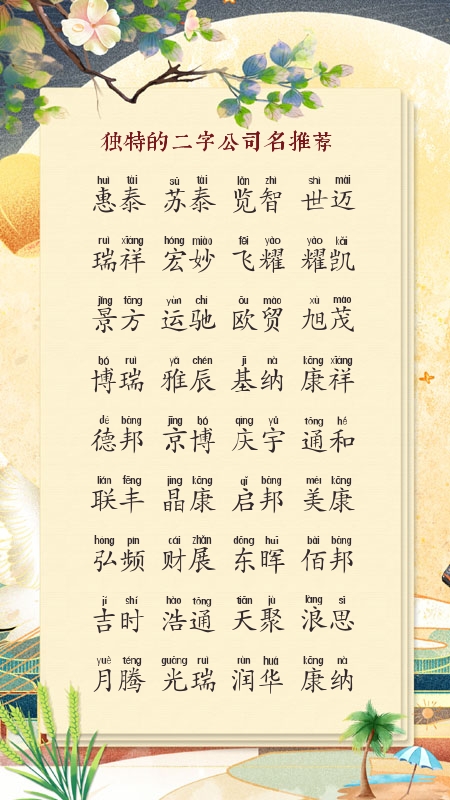 独特的二字公司名推荐
huì tài sū tài lǎn zhì shì mài
惠泰 苏泰 览智 世迈
ruì xiáng hóng miào fēi yào yào kǎi
瑞祥 宏妙 飞耀 耀凯
jǐng fāng yùn chí ōu mào xù mào
景方 运驰 欧贸 旭茂
bó ruì yǎ chén jī nà kāng xiáng
博瑞 雅辰 基纳 康祥
dé bāng jīng bó qìng yǔ tōng hé
德邦 京博 庆宇 通和
lián fēng jīng kāng qǐ bāng měi kāng
联丰 晶康 启邦 美康
hóng pín cái zhǎn dōng huī bǎi bāng
弘频 财展 东晖 佰邦
jí shí hào tōng tiān jù làng sī
吉时 浩通 天聚 浪思
yuè téng guāng ruì rùn huá kāng nà
月腾 光瑞 润华 康纳